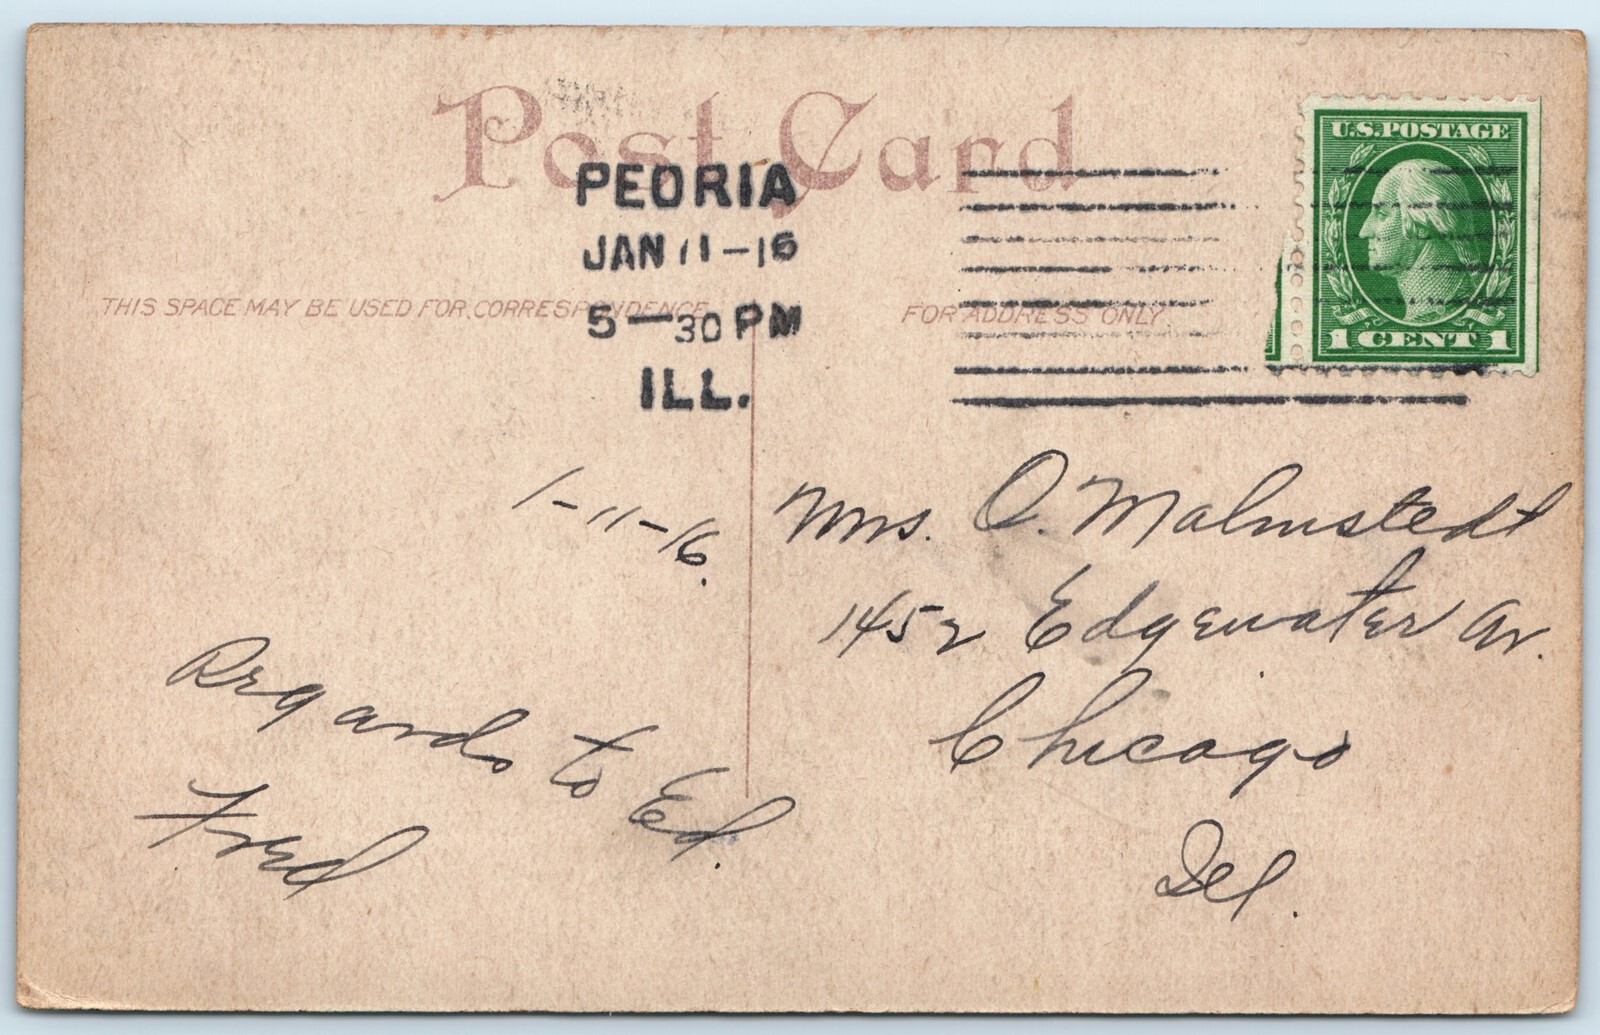 Post Card
U.S. POSTAGE
1 CENT 1
PEORIA
JAN 11-16
5-30 PM
ILL.
THIS SPACE MAY BE USED FOR CORRESPONDENCE
FOR ADDRESS ONLY
1-11-16.
Regards to Ed.
Fred
Mrs. O. Malmstedt
1452 Edgewater Av.
Chicago
Ill.